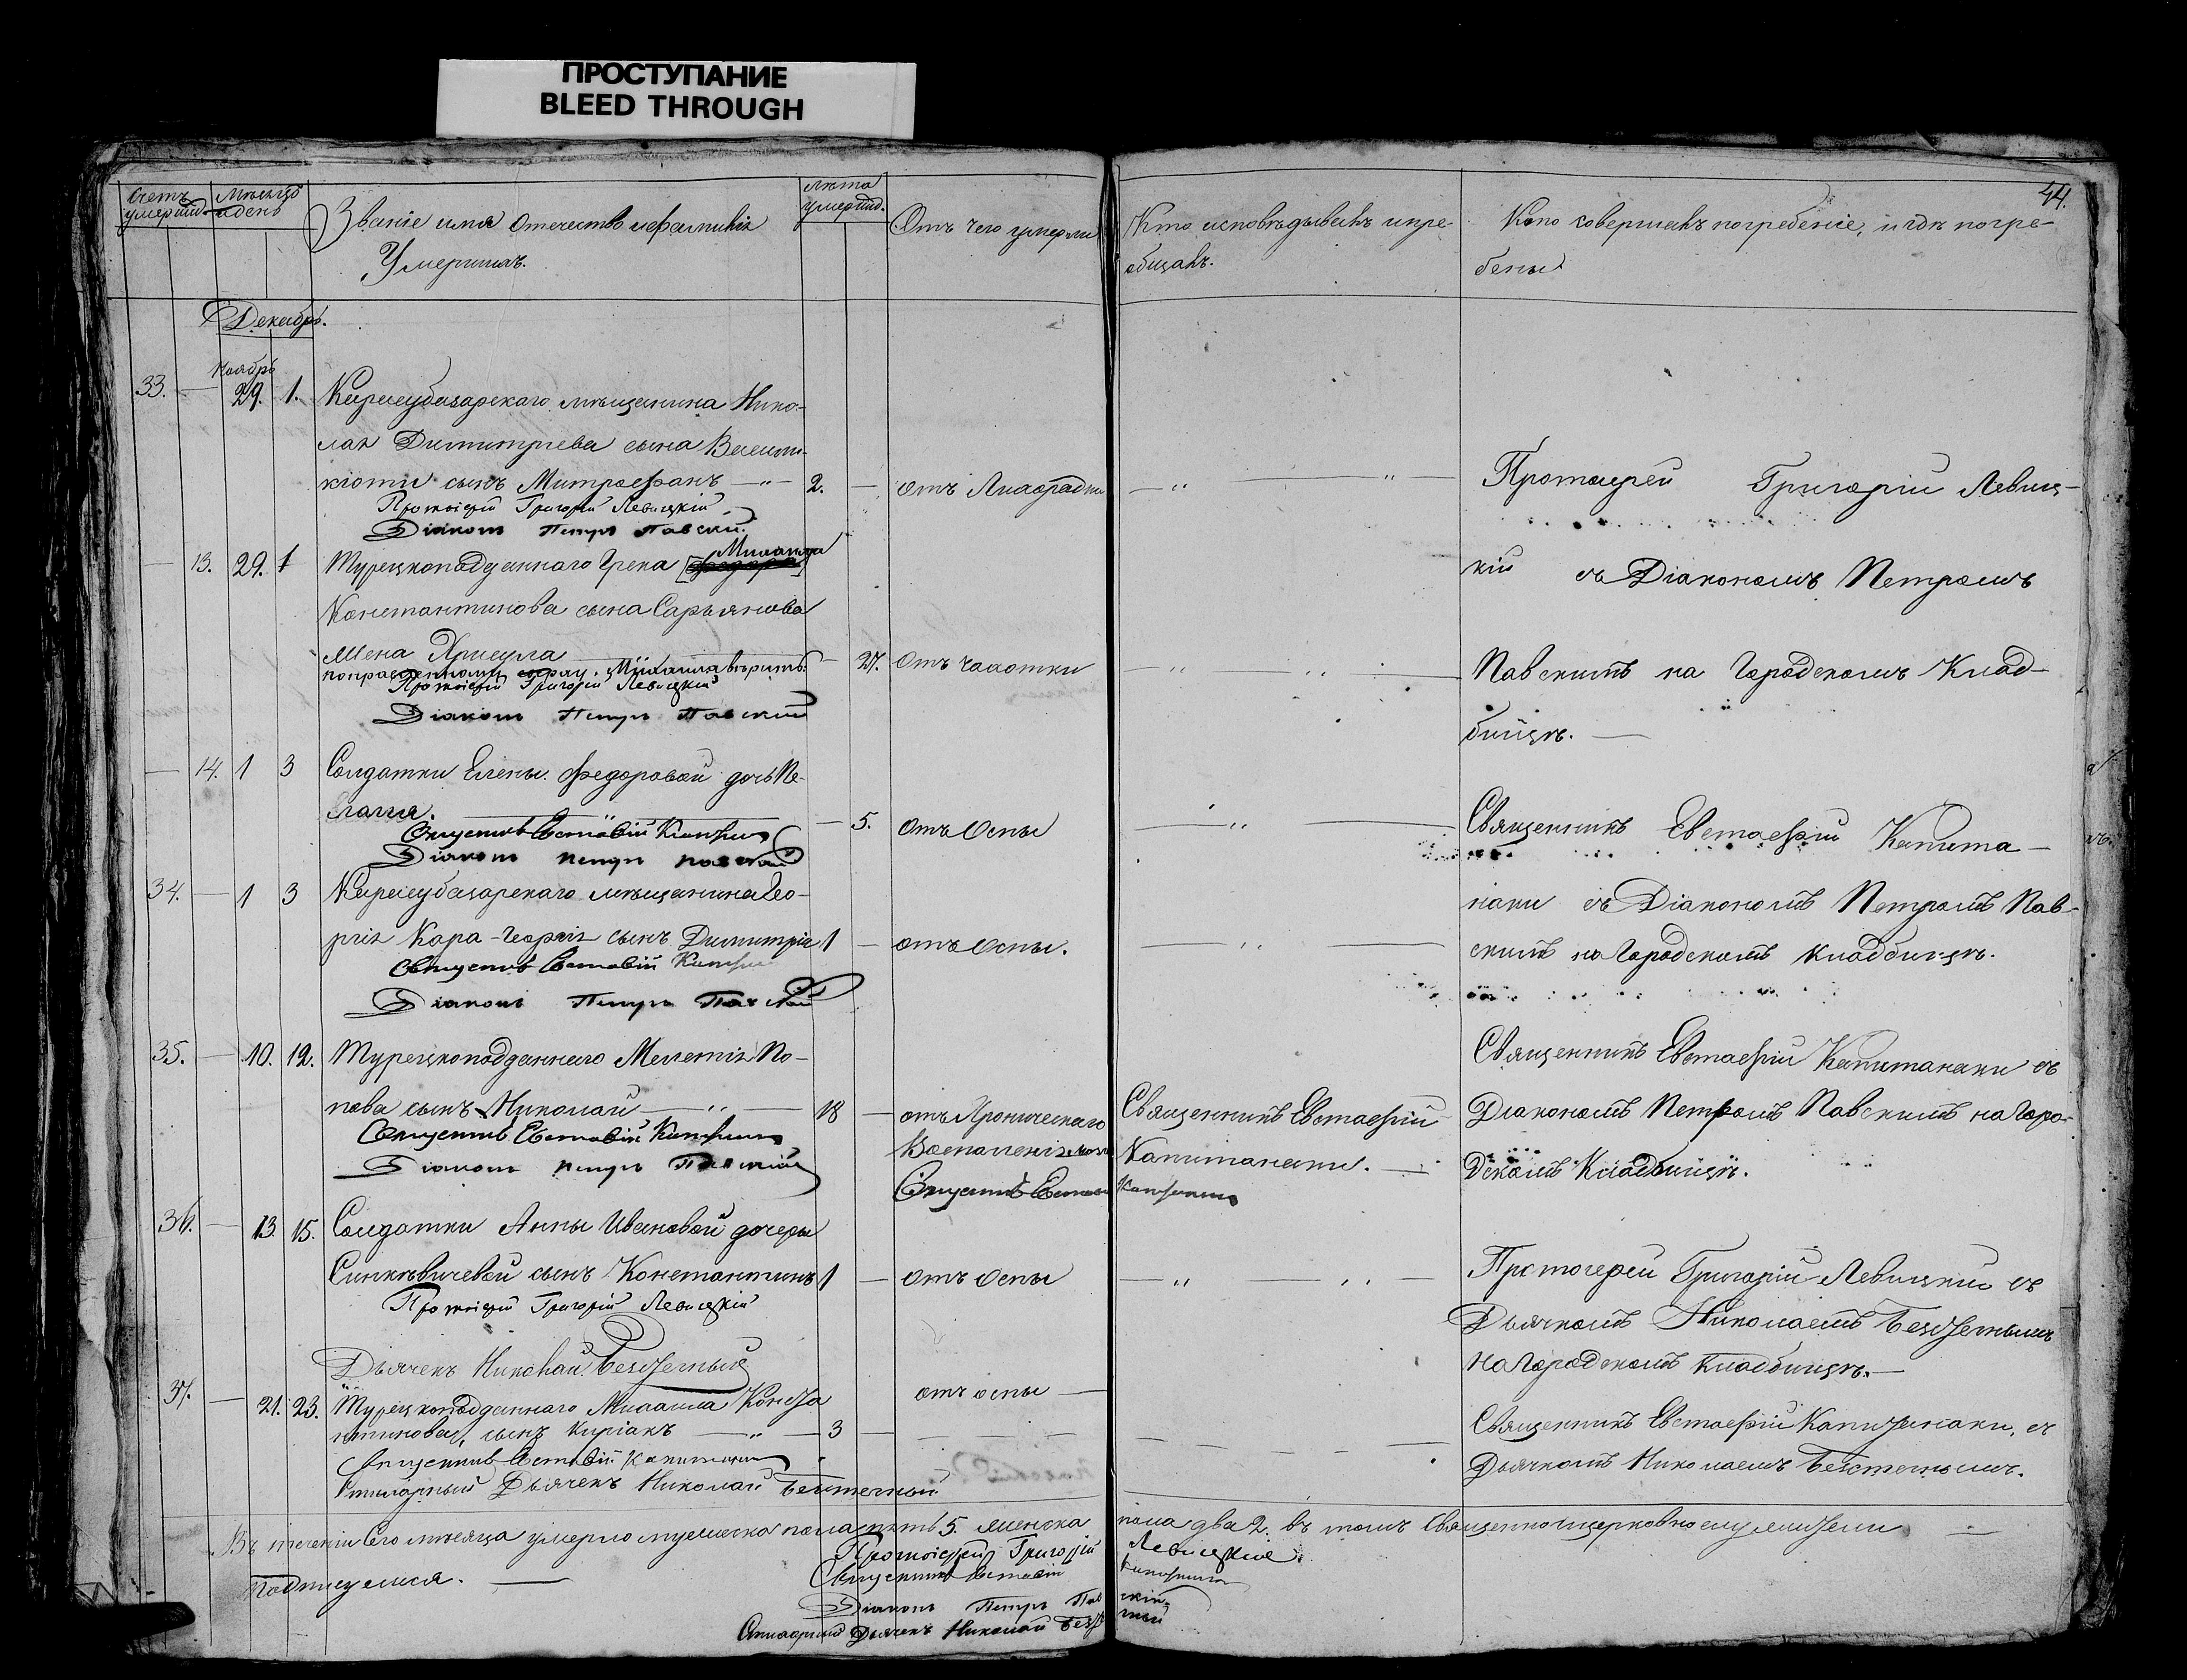 ПРОСТУПАНИЕ
BLEED THROUGH
44.
Счетъ умершихъ
Мѣсяцъ и день
Званіе имя Отечество и фамилія
Умершихъ.
Лѣта умершихъ.
Отъ чего умерли
Кто исповѣдывалъ и прі-
общалъ.
Кто совершалъ погребеніе, и гдѣ погре-
бены
Декабрь.
Ноябрь
33. — 29. 1. Карасубазарскаго мѣщанина Нико-
лая Димитріева сына
сынъ Митрофанъ — " — 2. — отъ Лихорадки — " — " —
Протоіерей Григорій Левицкій
Діаконъ Петръ Павскій.
Протоіерей Григорій Левиц-
кій съ Діакономъ Петромъ
Павскимъ на Городскомъ Клад-
бищѣ. —
— 13. 29. 1 Турецкоподданнаго Грека Михаила
Константинова сына Сарьянова
жена Хрисула — 27. отъ чахотки — " — " —
по правленному сверху: Михаила вѣрить.
Протоіерей Григорій Левицкій
Діаконъ Петръ Павскій
— 14. 1 3 Солдатки Елены Федоровой дочь Пе-
лагія. — 5. отъ Оспы — " —
Священникъ Евстафій Капитанаки
Діаконъ Петръ Павскій
Священникъ Евстафій Капита-
наки съ Діакономъ Петромъ Пав-
скимъ на Городскомъ кладбищѣ.
34. — 1 3 Карасубазарскаго мѣщанина Гео-
ргія Кара-Георгія сынъ Димитрій 1 — отъ Оспы. — " —
Священникъ Евстафій
Діаконъ Петръ Павскій
35. — 10. 12. Турецкоподданнаго Мелетія По-
пова сынъ Николай — " — 18 — отъ Хроническаго
Воспаленія
Священникъ Евстафій
Капитанаки. —
Священникъ Евстафій Капитанаки
Діаконъ Петръ Павскій
Священникъ Евстафій Капитанаки съ
Діакономъ Петромъ Павскимъ на Горо-
дскомъ Кладбищѣ.
36. — 13. 15. Солдатки Анны Ивановой дочери
Синкевичевой сынъ Константинъ 1 — отъ оспы — " — " —
Протоіерей Григорій Левицкій
Дьячекъ Николай Безсчетный
Протоіерей Григорій Левицкій съ
Дьячкомъ Николаемъ Безсчетнымъ
на Городскомъ кладбищѣ. —
37. — 21. 23. Турецкоподданнаго Михаила Конста
нтинова, сынъ Киріакъ — " — 3 — отъ оспы —
Священникъ Евстафій Капитанаки
Дьячекъ Николай Безсчетный
Священникъ Евстафій Капитанаки, съ
Дьячкомъ Николаемъ Безсчетнымъ.
Въ теченіи Сего мѣсяца умерло мужеска пола пять 5. женска пола два 2. въ томъ Священно и церковнослужители —
подписуемся. —
Протоіерей Григорій Левицкій
Священникъ Евстафій Капитанаки
Діаконъ Петръ Павскій
Дьячекъ Николай Безсчетный